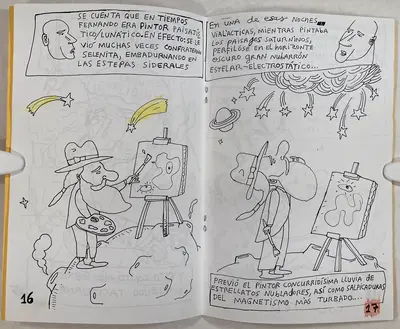 SE CUENTA QUE EN TIEMPOS
FERNANDO ERA PINTOR PAISATIS
TICO/LUNATICO. EN EFECTO: SE LE
VIO MUCHAS VECES CONFRATERNA
SELENITA, EMBADURNANDO EN
LAS ESTEPAS SIDERALES
16
EN UNA DE ESAS NOCHES
VIALÁCTICAS, MIENTRAS PINTABA
LOS PAISAJES SATURNINOS,
PERFILÓSE EN EL HORIZONTE
OSCURO GRAN NUBARRÓN
ESTELAR-ELECTROSTÁTICO...
PREVIÓ EL PINTOR CONCURRIDÍSIMA LLUVIA DE
ESTRELLATOS NUBLADORES, ASÍ COMO SALPICADURAS
DEL MAGNETISMO MÁS TURBADO....
17